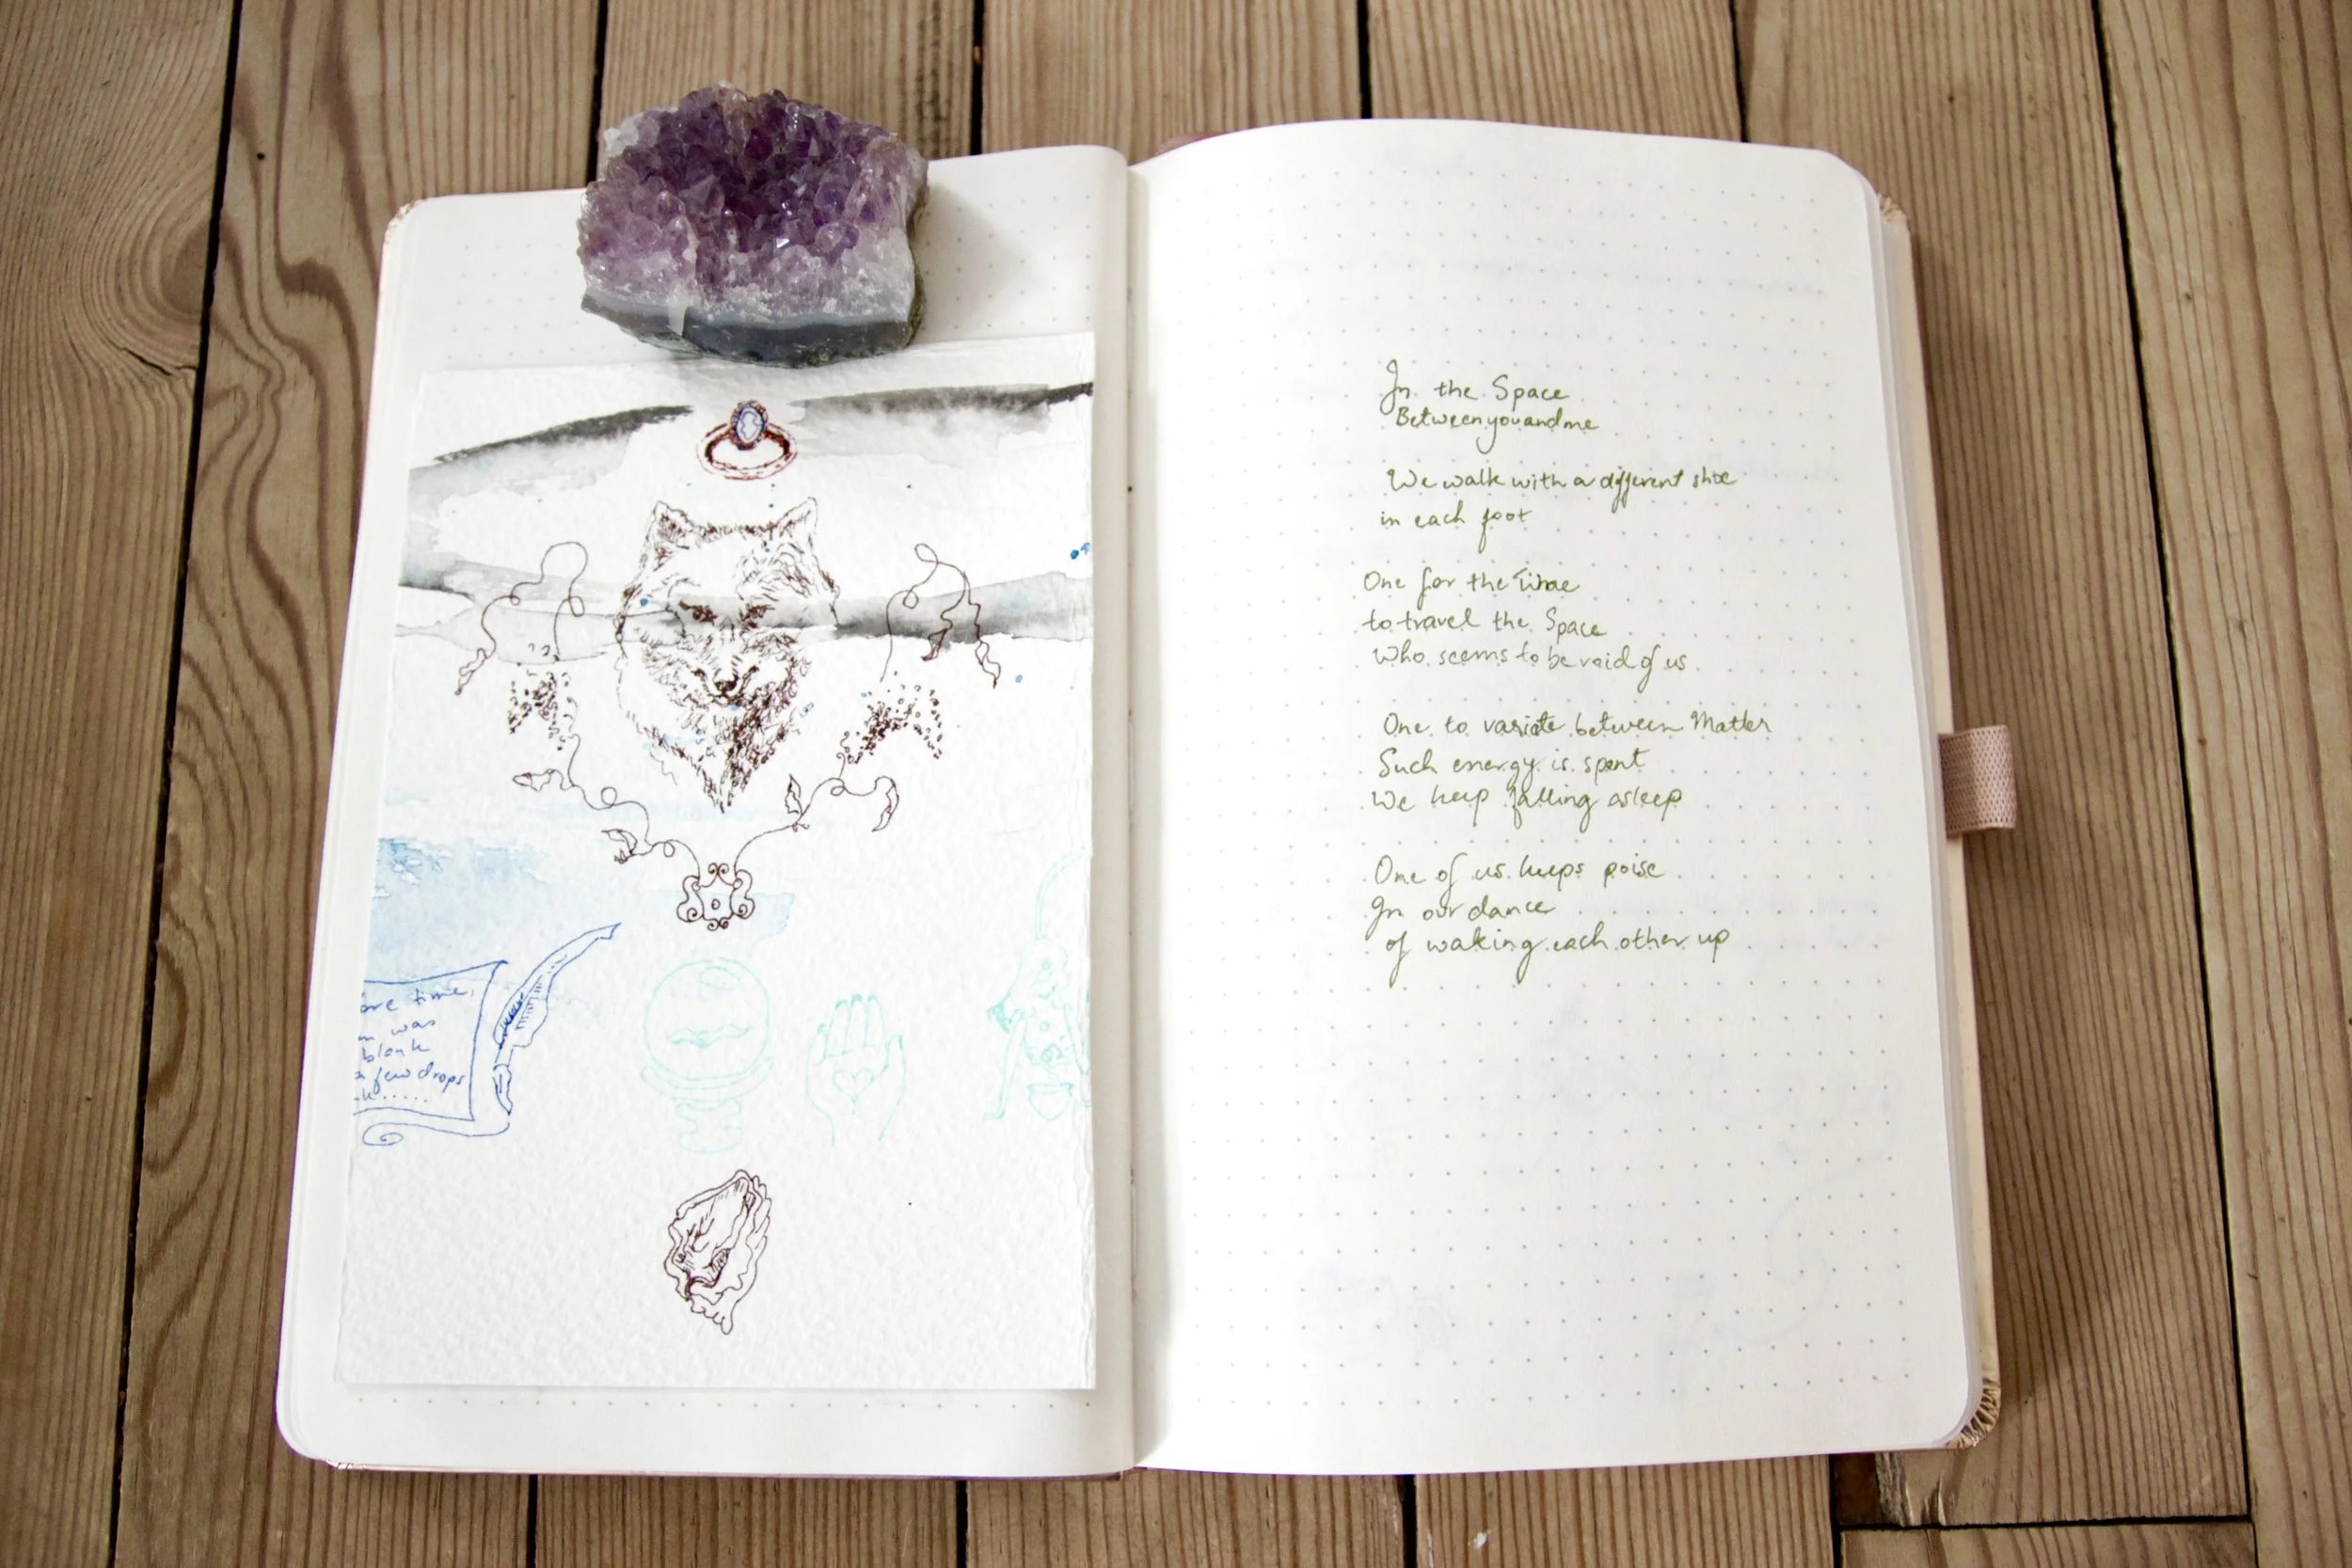 ore time,
was
blank
few drops
In the Space
Between you and me
We walk with a different shoe
in each foot
One for the Time
to travel the Space
Who seems to be void of us
One to variate between Matter
Such energy is spent
We keep falling asleep
One of us keeps poise
In our dance
of waking each other up